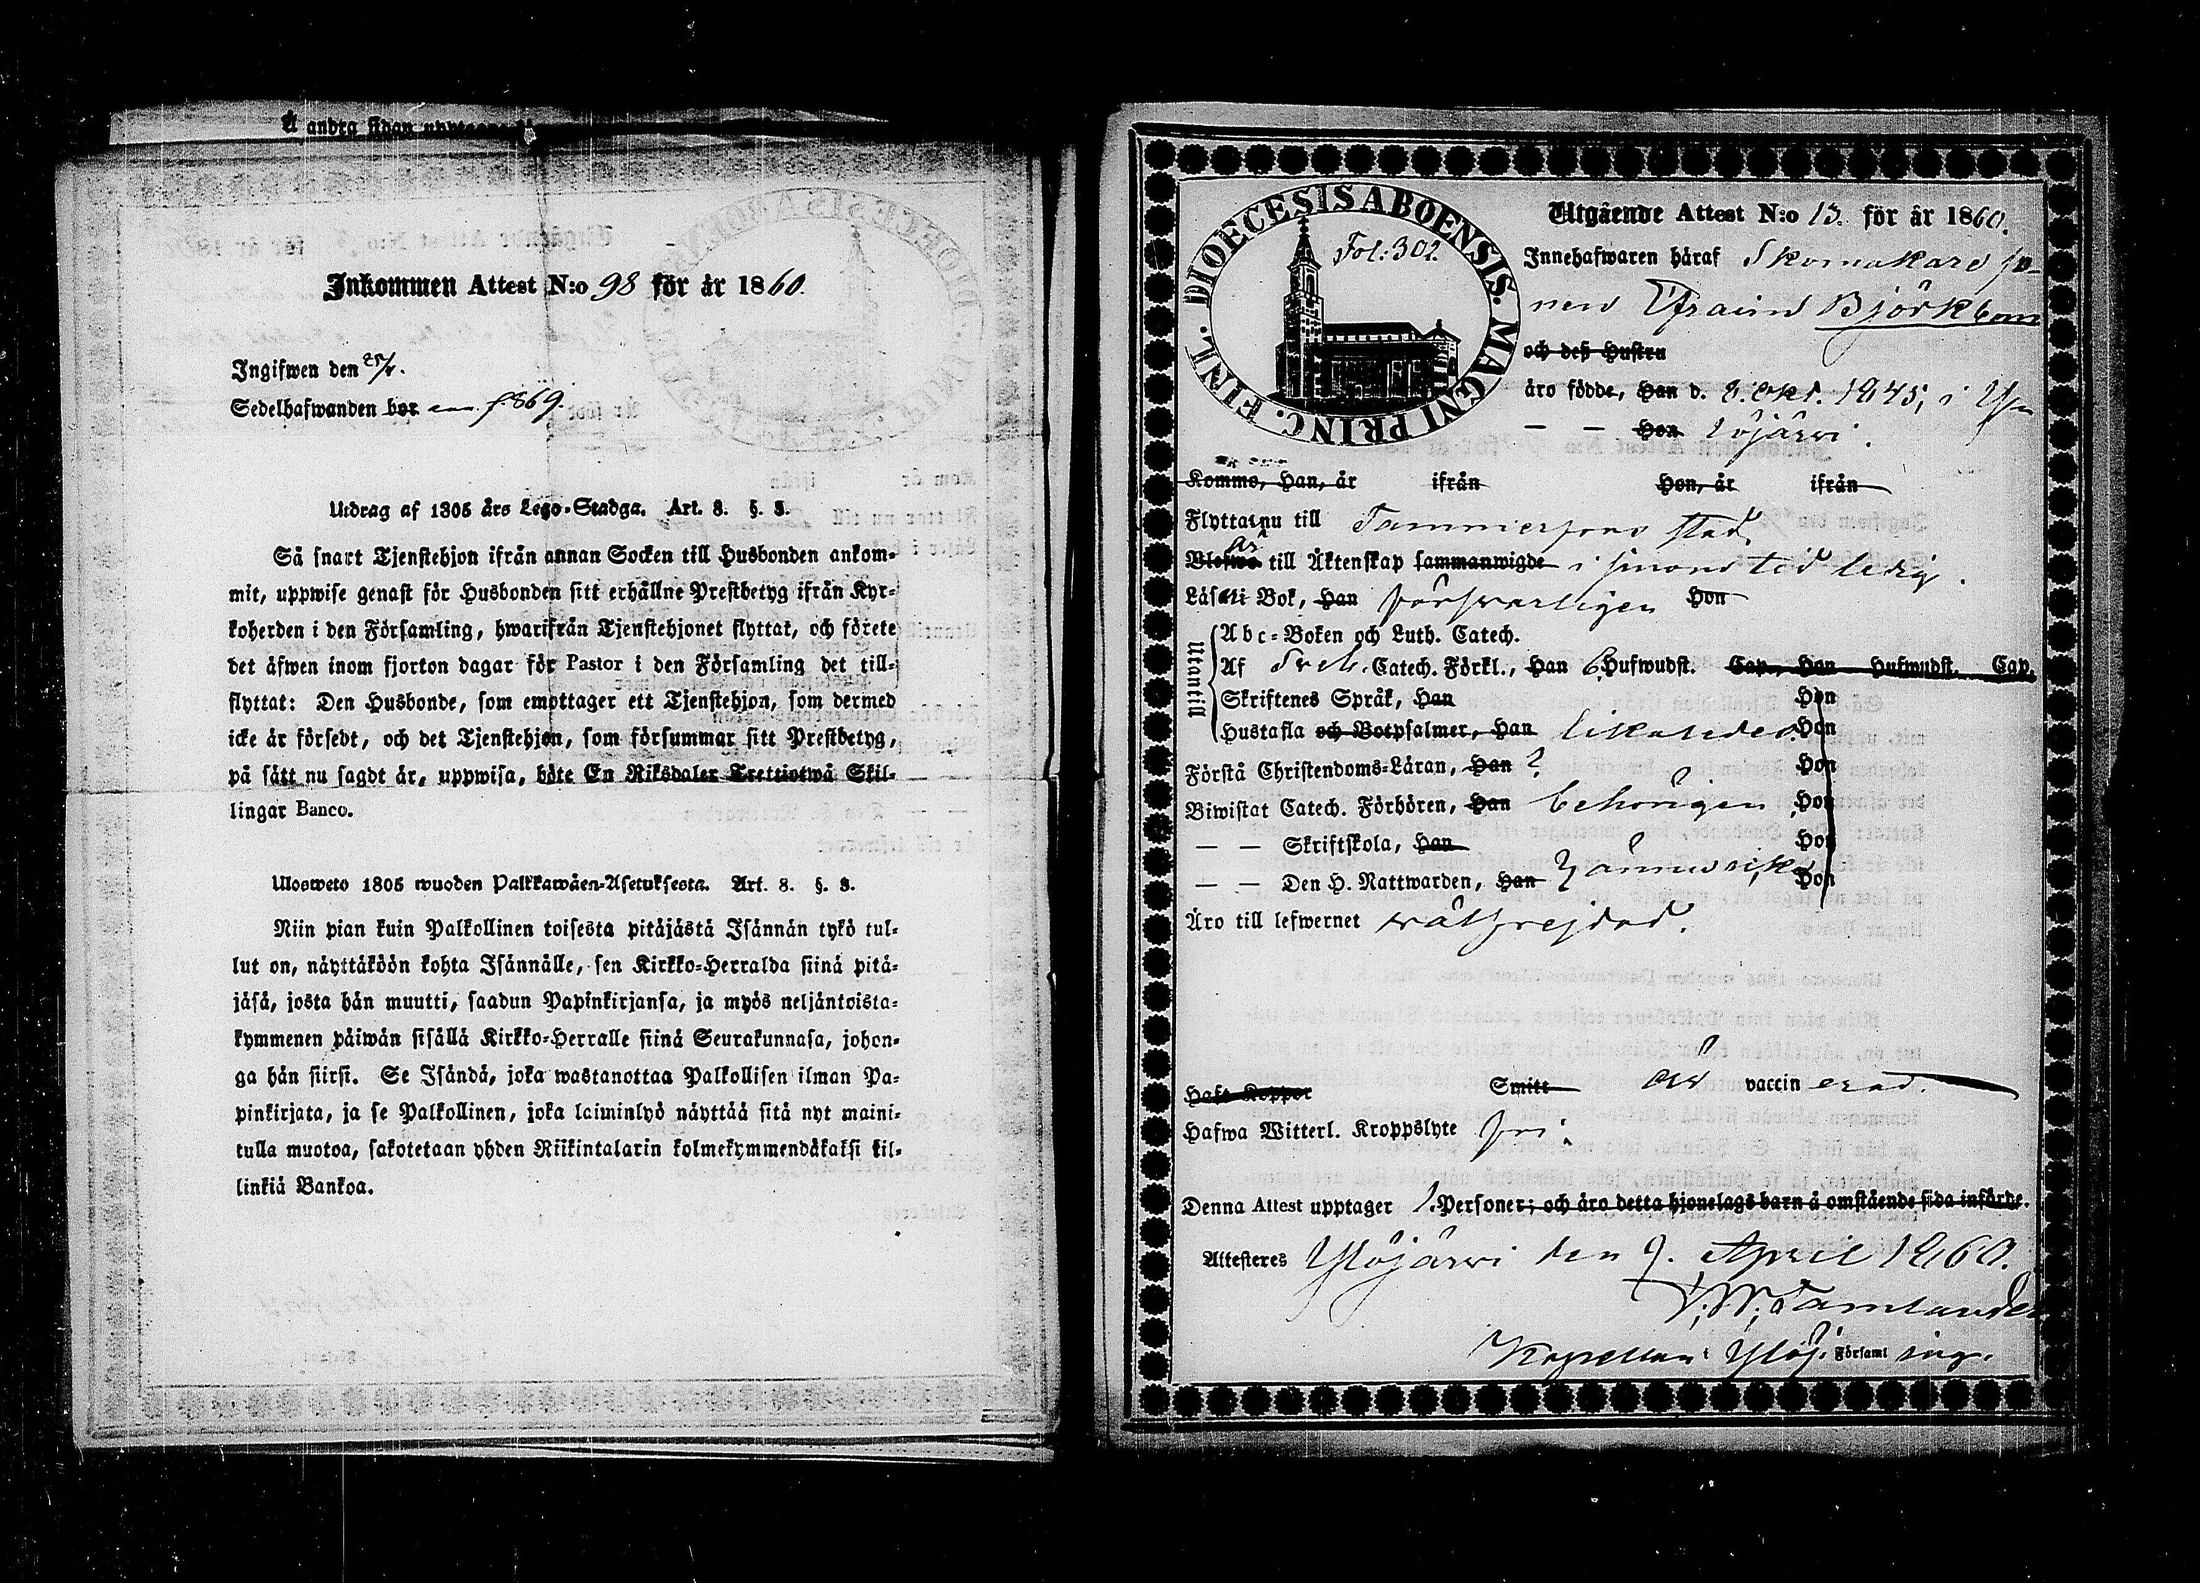 A andra sidan
Inkommen Attest N:o 98 för år 1860.
Ingifwen den 25/4.
Sedelhafwanden bor p. 869.
Utdrag af 1805 års Lego-Stadga. Art. 8. §. 3.
Så snart Tjenstehjon ifrån annan Socken till Husbonden ankom-
mit, uppwise genast för Husbonden sitt erhållne Prestbetyg ifrån Kyr-
koherden i den Församling, hwarifrån Tjenstehjonet flyttat, och förete
det äfwen inom fjorton dagar för Pastor i den Församling det till-
flyttat: Den Husbonde, som emottager ett Tjenstehjon, som dermed
icke är försedt, och det Tjenstehjon, som försummar sitt Prestbetyg,
på sätt nu sagdt är, uppwisa, böte En Riksdaler Trettiotwå Skil-
lingar Banco.
Ulosweto 1805 wuoden Palkkawäen-Asetuksesta. Art. 8. §. 3.
Niin pian kuin Palkollinen toisesta pitäjästä Isännän tykö tul-
lut on, näyttäköön kohta Isännälle, sen Kirkko-Herralda siinä pitä-
jäsä, josta hän muutti, saadun Papinkirjansa, ja myös neljäntoista-
kymmenen päiwän sisällä Kirkko-Herralle siinä Seurakunnasa, johon-
ga hän siirsi. Se Isändä, joka wastanottaa Palkollisen ilman Pa-
pinkirjata, ja se Palkollinen, joka laiminlyö näyttää sitä nyt maini-
tulla muotoa, sakotetaan yhden Riikintalarin kolmekymmendäkaksi kil-
linkiä Bankoa.
DIOECESIS ABOENSIS. MAGNI PRINC. FINL.
Fol: 302.
Utgående Attest N:o 13. för år 1860.
Innehafwaren häraf Skomakare so-
nen Efraim Björkbom
och deß Hustru
äro födde, Han d. 8. Okt. 1845, i Y-
— — Hon löjärwi.
Kommo, Han, år ifrån Hon, år ifrån
Flyttat nu till Tammerfors stad.
Blefwo är till Äktenskap sammanwigde i sinom tid ledig.
Läsa i Bok, Han försvarligen Hon
Utantill
Abc-Boken och Luth. Catech.
Af Sveb. Catech. Förkl., Han 6 Hufwudst. Cap., Hon Hufwudst. Cap.
Skriftenes Språk, Han Hon
Hustafla och Botpsalmer, Han likaledes Hon
Förstå Christendoms-Läran, Han ? Hon
Biwistat Catech. Förhören, Han behörigen Hon
— — Skriftskola, Han Hon
— — Den H. Nattwarden, Han Hon
Äro till lefwernet wälfrejdad.
Haft Koppor Smitt är vaccinerad.
Hafwa Witterl. Kroppslyte fri.
Denna Attest upptager 1. Personer; och äro detta hjonelags barn å omstående sida införde.
Attesteres Ylöjärwi den 9. April 1860.
Tamlander
Kapellan i Ylöj. Församling.